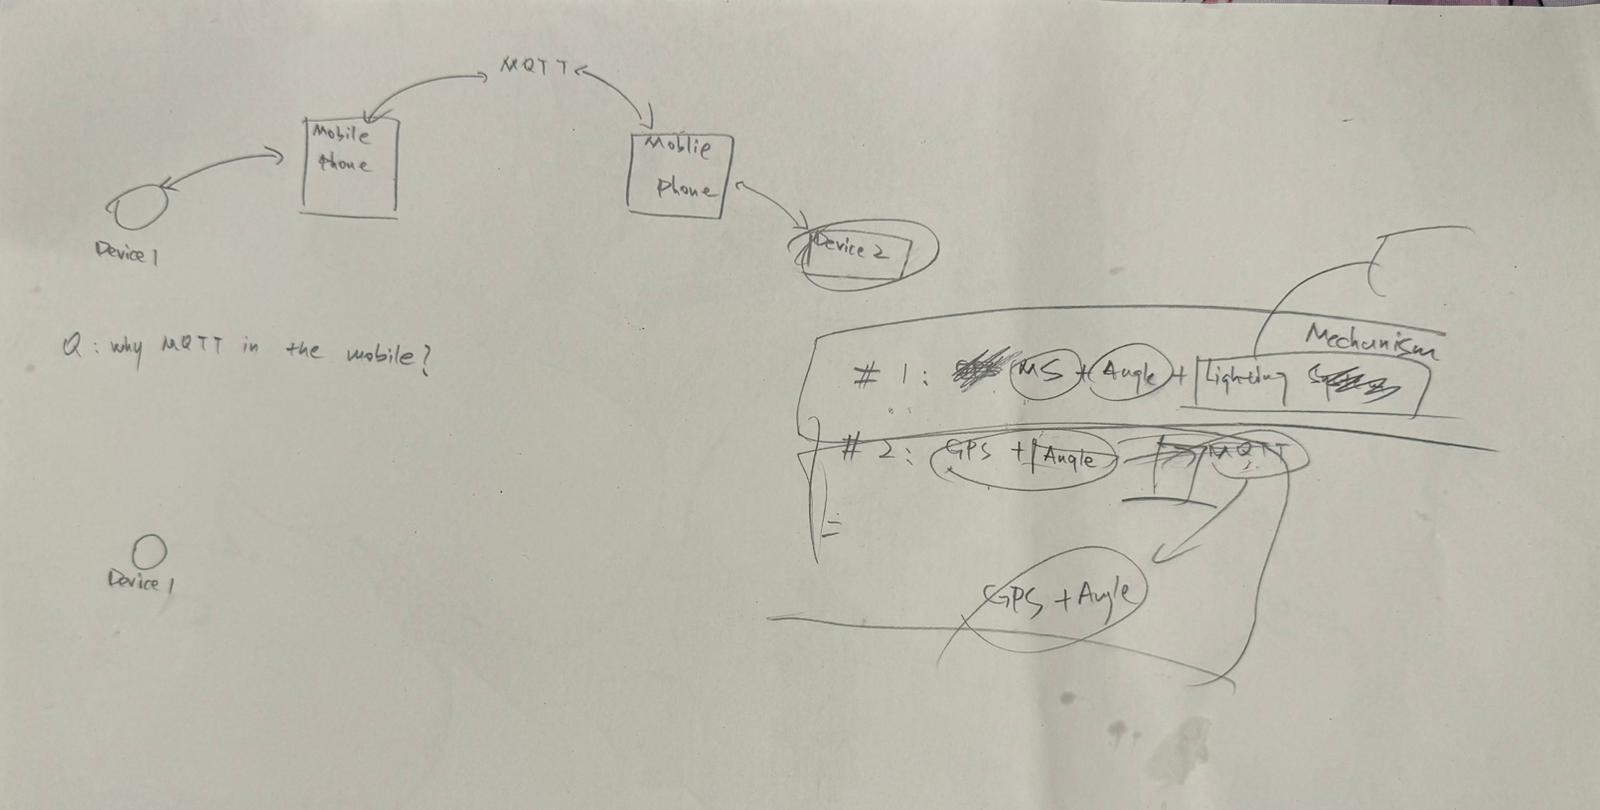 MQTT
Mobile
phone
Moblie
phone
Device 1
Device 2
Q: why MQTT in the mobile?
Mechanism
# 1: MS + Angle + Lighting
# 2: GPS + Angle MQTT
GPS + Angle
Device 1